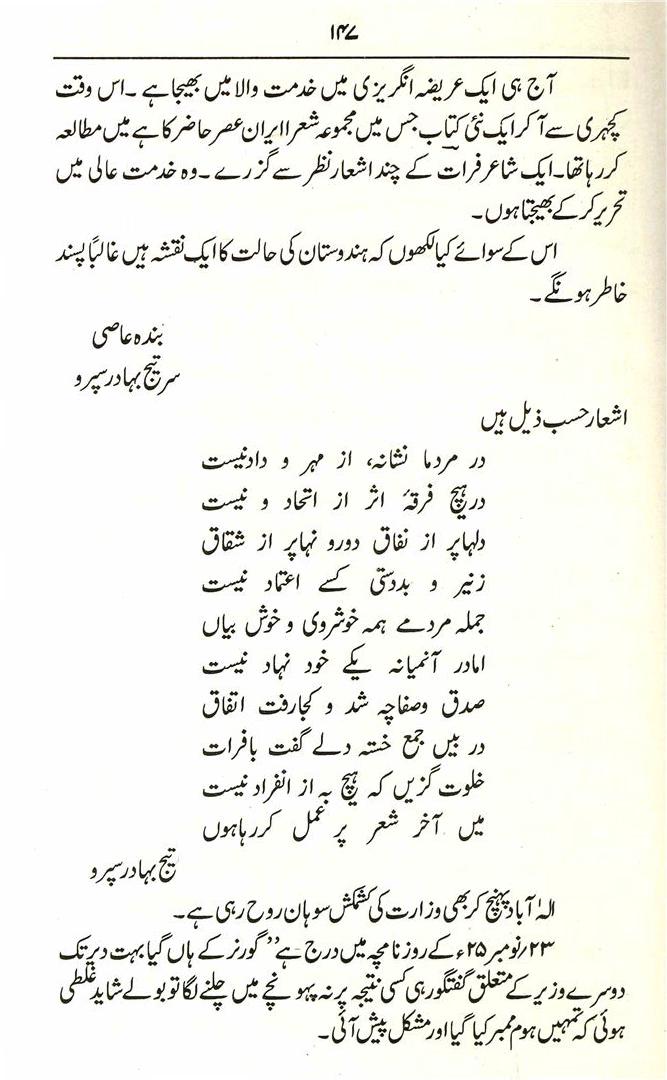 ۱۴۷
آج ہی ایک عریضہ انگریزی میں خدمت والا میں بھیجا ہے ۔ اس وقت
کچہری سے آ کر ایک نئی کتاب جس میں مجموعہ شعرا ایران عصر حاضر کا ہے میں مطالعہ
کر رہا تھا۔ ایک شاعر فرات کے چند اشعار نظر سے گزرے ۔ وہ خدمت عالی میں
تحریر کر کے بھیجتا ہوں ۔
اس کے سوائے کیا لکھوں کہ ہندوستان کی حالت کا ایک نقشہ ہیں غالباً پسند
خاطر ہونگے ۔
بندہ عاصی
سر تیج بہادر سپرو
اشعار حسب ذیل ہیں
در مردما نشانہ، از مہر و دادنیست
درہیچ فرقۂ اثر از اتحاد و نیست
دلہاپر از نفاق دورو نہاپر از شقاق
زنیر و بددستی کسے اعتماد نیست
جملہ مردمے ہمہ خوشروی و خوش بیاں
امادر آنمیانہ یکے خود نہاد نیست
صدق وصفاچہ شد و کجارفت اتفاق
در بیں جمع خستہ دلے گفت بافرات
خلوت گزیں کہ ہیچ بہ از انفراد نیست
میں آخر شعر پر عمل کررہاہوں
تیج بہادر سپرو
الہٰ آباد پہنچ کر بھی وزارت کی کشمکش سوہان روح رہی ہے ۔
۲۳/نومبر ۲۵ء کے روزنامچہ میں درج ہے ”گورنر کے ہاں گیا بہت دیر تک
دوسرے وزیر کے متعلق گفتگو رہی کسی نتیجہ پر نہ پہونچے میں چلنے لگا تو بولے شاید غلطی
ہوئی کہ تمہیں ہوم ممبر کیا گیا اور مشکل پیش آئی ۔